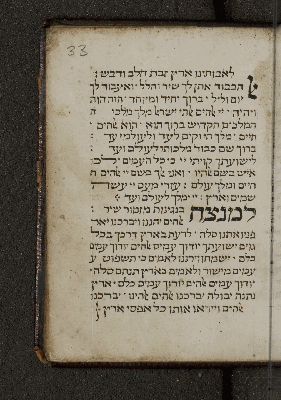 33
לאבותינו ארץ זבת חלב ודבש :
הכבוד אתן לך שיר והלל ואעבוד לך
יום וליל ברוך יחיד ומיוחד היה הוה
ויהיה יי אלהים אלהי ישראל מלך מלכי
המלכים הקדוש ברוך הוא הוא אלהים
חיים מלך חי וקים לעד ולעולמי עד
ברוך שם כבוד מלכותו לעולם ועד
לישועתך קויתי יי כי כל העמים ילכו
איש בשם אלהיו ואני אלך בשם יי אלהים
חיים ומלך עולם עזרי מעם יי עושה
שמים וארץ יי ימלוך לעולם ועד
למנצח בנגינות מזמור שיר
אלהים יחננו ויברכנו יאר
פניו אתנו סלה לדעת בארץ דרכך בכל
גוים ישועתך יודוך עמים אלהים יודוך עמים
כלם ישמחו וירננו לאמים כי תשפוט ע
עמים מישור ולאמים בארץ תנחם סלה
יודוך עמים אלהים יודוך עמים כלם ארץ
נתנה יבולה יברכנו אלהים אלהינו יברכנו
אלהים וייראו אותו כל אפסי ארץ